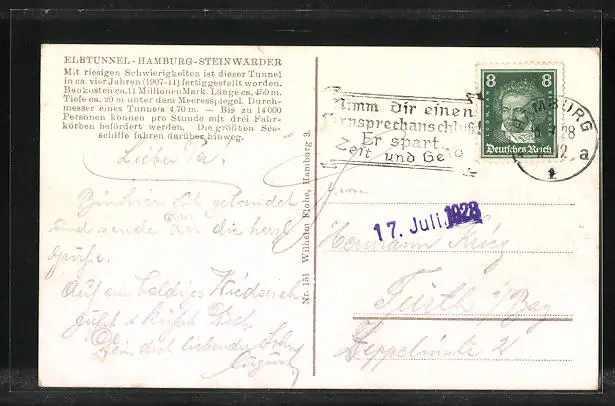 ELBTUNNEL-HAMBURG-STEINWÄRDER
Mit riesigen Schwierigkeiten ist dieser Tunnel
in ca. vier Jahren (1907-11) fertiggestellt worden.
Baukosten ca. 11 Millionen Mark. Länge ca. 450 m.
Tiefe ca. 20 m unter dem Meeresspiegel. Durch-
messer eines Tunners 4,70 m. — Bis zu 14 000
Personen können pro Stunde mit drei Fahr-
körben befördert werden. Die größten See-
schiffe fahren darüber hinweg.
Lieber Pa.
Bin hier gut gelandet
und sende Dir die herzl.
Grüße.
Auf ein baldiges Wiedersehn
grüßt & küßt Dich
Dein dich liebender Sohn
August
Nr. 151 Wilhelm Flohe, Hamburg 3.
Nimm dir einen
Fernsprechanschluß
Er spart
Zeit und Geld
8 8
Deutsches Reich
HAMBURG
28
a
1
17. Juli 1928
Herrn
Hermann
Fürth i/Bay
Zeppelinstr. 2